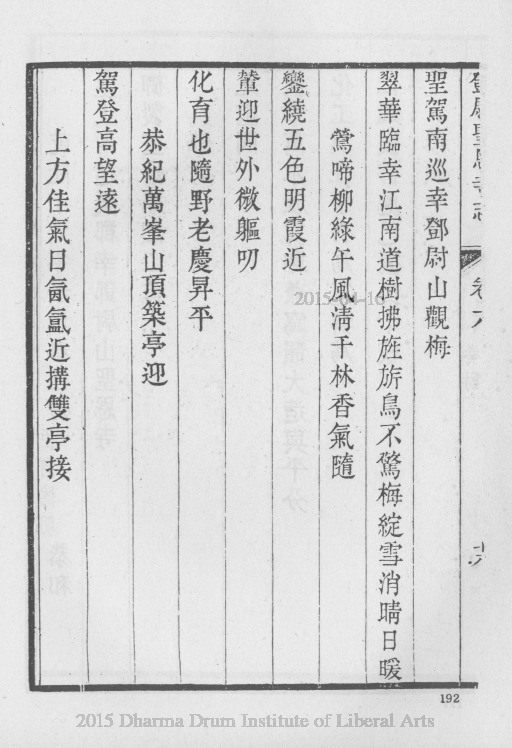 聖駕南巡幸鄧尉山觀梅
翠華臨幸江南道樹拂旌旂鳥不驚梅綻雪消晴日暖
鶯啼柳綠午風清千林香氣隨
鑾繞五色明霞近
輦迎世外微軀叨
化育也隨野老慶昇平
恭紀萬峯山頂築亭迎
駕登高望遠
上方佳氣日氤氳近搆雙亭接
192
2015-04-16
2015 Dharma Drum Institute of Liberal Arts